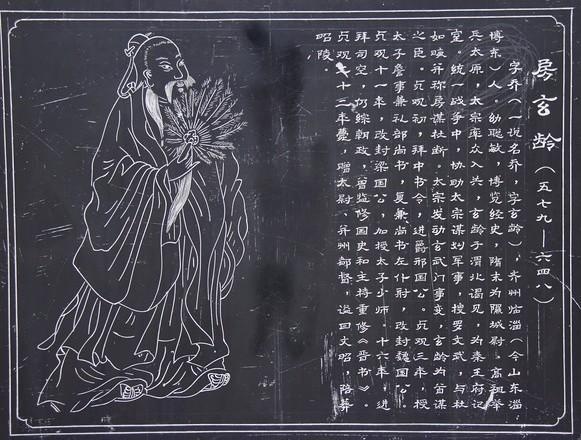 房玄龄（五七九——六四八）
字乔（一说名乔，字玄龄）齐州临淄（今山东淄
博东）人。幼聪敏，博览经史，隋末为隰城尉。高祖举
兵太原，太宗率众入关，玄龄于渭北谒见，为秦王府记
室。统一战争中，协助太宗谋划军事，搜罗文武，与杜
如晦并称房谋杜断。太宗发动玄武门事变，玄龄为首谋
之臣。贞观初，拜中书令，进爵邢国公。贞观三年，授
太子詹事兼礼部尚书，复兼尚书左仆射，改封魏国公。
贞观十一年，改封梁国公，加授太子少师。十六年，进
拜司空，仍综朝政，曾监修国史和主持重修《晋书》。
贞观二十三年薨，赠太尉、并州都督，谥曰文昭，陪葬
昭陵。